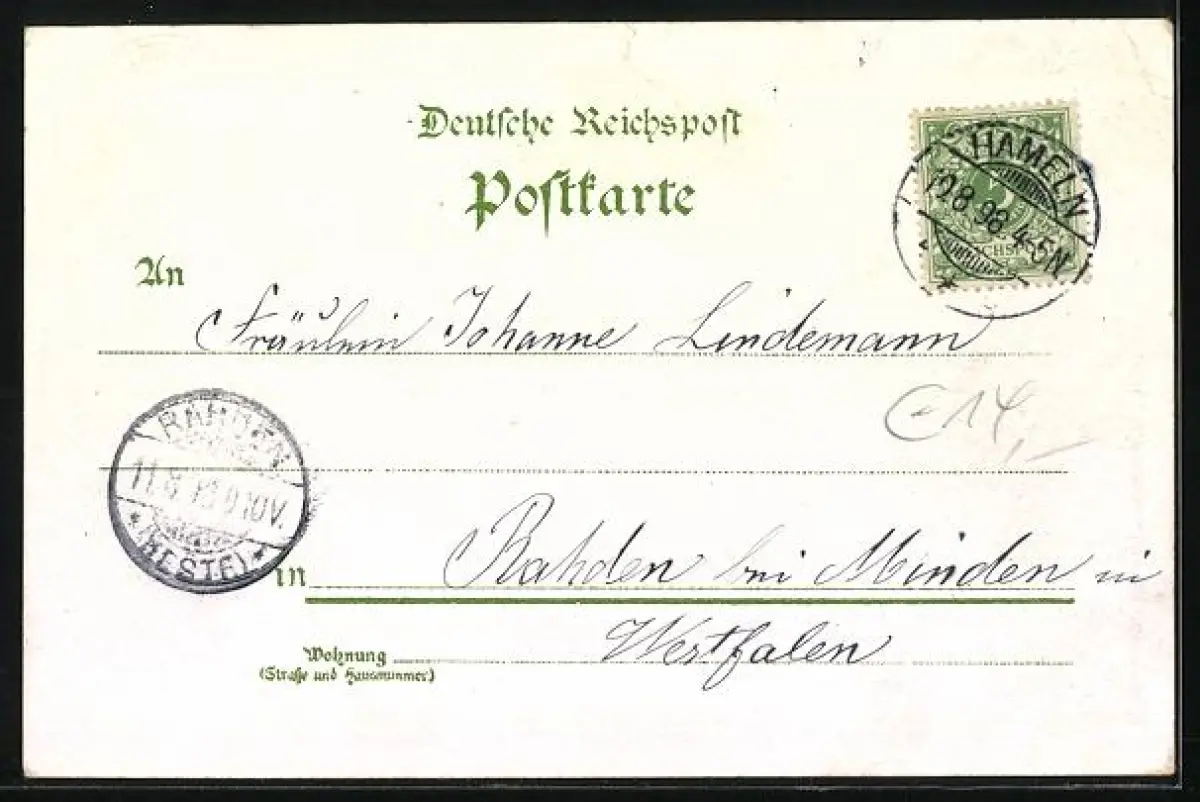 Deutsche Reichspost
Postkarte
HAMELN
10.8.98 4-5N
An
Fräulein Johanne Lindemann
RAHDEN
11.8.98 9-10V.
*(WESTF.)*
in Rahden bei Minden in
Westfalen
Wohnung
(Straße und Hausnummer)